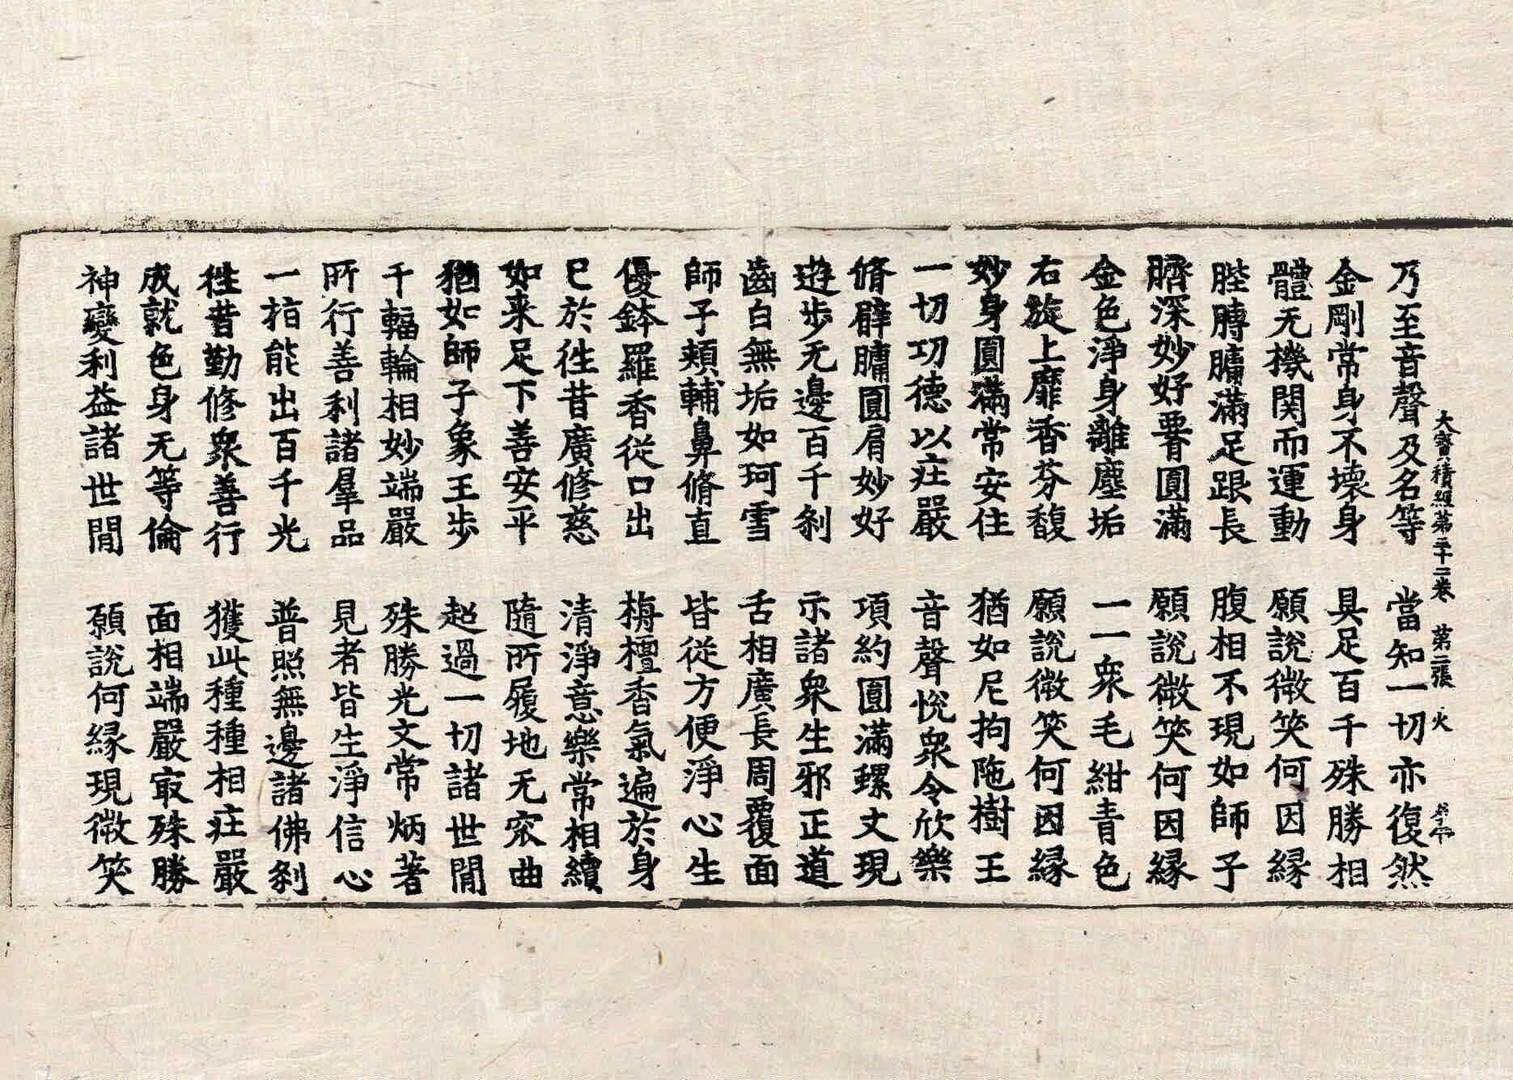 大寶積經第三十二卷　第二張　火
乃至音聲及名等　當知一切亦復然
金剛常身不壞身　具足百千殊勝相
體无機関而運動　願說微笑何因緣
䏶膞𦟛滿足跟長　腹相不現如師子
臍深妙好臀圓滿　願說微笑何因緣
金色淨身離塵垢　一一衆毛紺青色
右旋上靡香芬馥　願說微笑何因緣
妙身圓滿常安住　猶如尼拘陁樹王
一切功德以庄嚴　音聲悅衆令欣樂
脩臂𦟛圓肩妙好　項約圓滿螺文現
遊步无邊百千剎　示諸衆生邪正道
齒白無垢如珂雪　舌相廣長周覆面
師子頰輔鼻脩直　皆從方便淨心生
優鉢羅香從口出　栴檀香氣遍於身
已於往昔廣修慈　清淨意樂常相續
如来足下善安平　隨所履地无㝡曲
猶如師子象王步　超過一切諸世閒
千輻輪相妙端嚴　殊勝光文常炳著
所行善利諸羣品　見者皆生淨信心
一相能出百千光　普照無邊諸佛剎
往昔勤修衆善行　獲此種種相庄嚴
成就色身无等倫　面相端嚴㝡殊勝
神變利益諸世閒　願說何緣現微笑